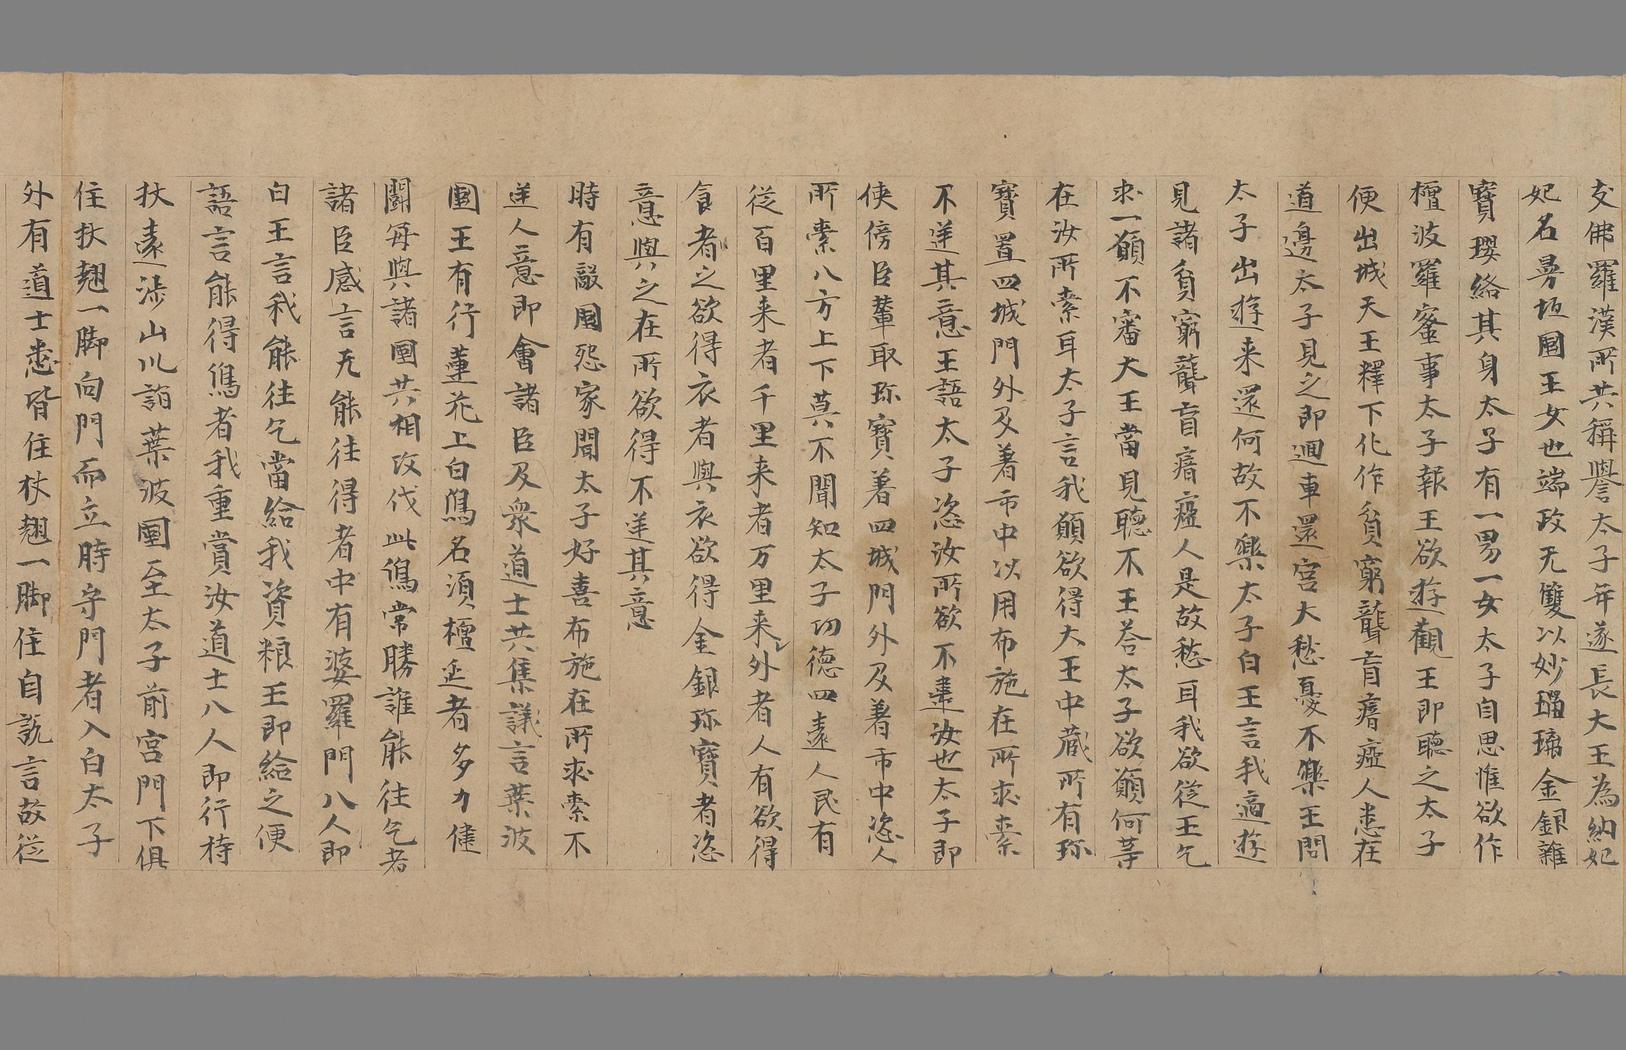 支佛羅漢所共稱譽太子年遂長大王為納妃
妃名曼坻國王女也端政无雙以妙瑠璃金銀雜
寶瓔珞其身太子有一男一女太子自思惟欲作
檀波羅蜜事太子報王欲遊觀王即聽之太子
便出城天王釋下化作貧窮聾盲瘖瘂人悉在
道邊太子見之即迴車還宮大愁憂不樂王問
太子出遊来還何故不樂太子白王言我適遊
見諸貧窮聾盲瘖瘂人是故愁耳我欲從王乞
求一願不審大王當見聽不王荅太子欲願何等
在汝所索耳太子言我願欲得大王中藏所有珎
寶置四城門外及著市中以用布施在所求索
不逆其意王語太子恣汝所欲不違汝也太子即
使傍臣輦取珎寶著四城門外及著市中恣人
所索八方上下莫不聞知太子功德四遠人民有
從百里来者千里来者万里来外者人有欲得
食者之欲得衣者與衣欲得金銀珎寶者恣
意與之在所欲得不逆其意
時有敵國怨家聞太子好喜布施在所求索不
逆人意即會諸臣及衆道士共集議言葉波
國王有行蓮花上白鳥名須檀延者多力健
鬪每與諸國共相攻伐此鳥常勝誰能往乞者
諸臣咸言无能往得者中有婆羅門八人即
白王言我能往乞當給我資粮王即給之便
語言能得鳥者我重賞汝道士八人即行持
杖遠涉山川詣葉波國至太子前宮門下俱
住扙翹一脚向門而立時守門者入白太子
外有道士悉皆住杖翹一脚住自說言故從